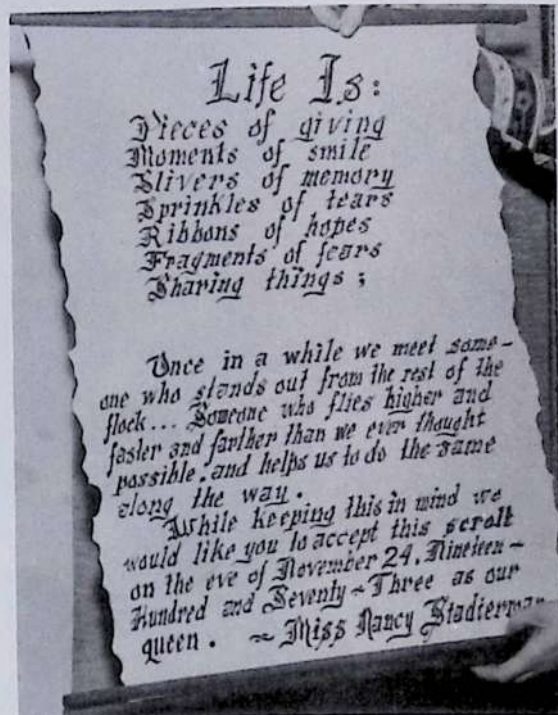 Life Is:
Pieces of giving
Moments of smile
Slivers of memory
Sprinkles of tears
Ribbons of hopes
Fragments of fears
Sharing things;
Once in a while we meet some-
one who stands out from the rest of the
flock... Someone who flies higher and
faster and farther than we ever thought
possible, and helps us to do the same
along the way.
While keeping this in mind we
would like you to accept this scroll
on the eve of November 24, Nineteen-
Hundred and Seventy-Three as our
queen. ~ Miss Nancy